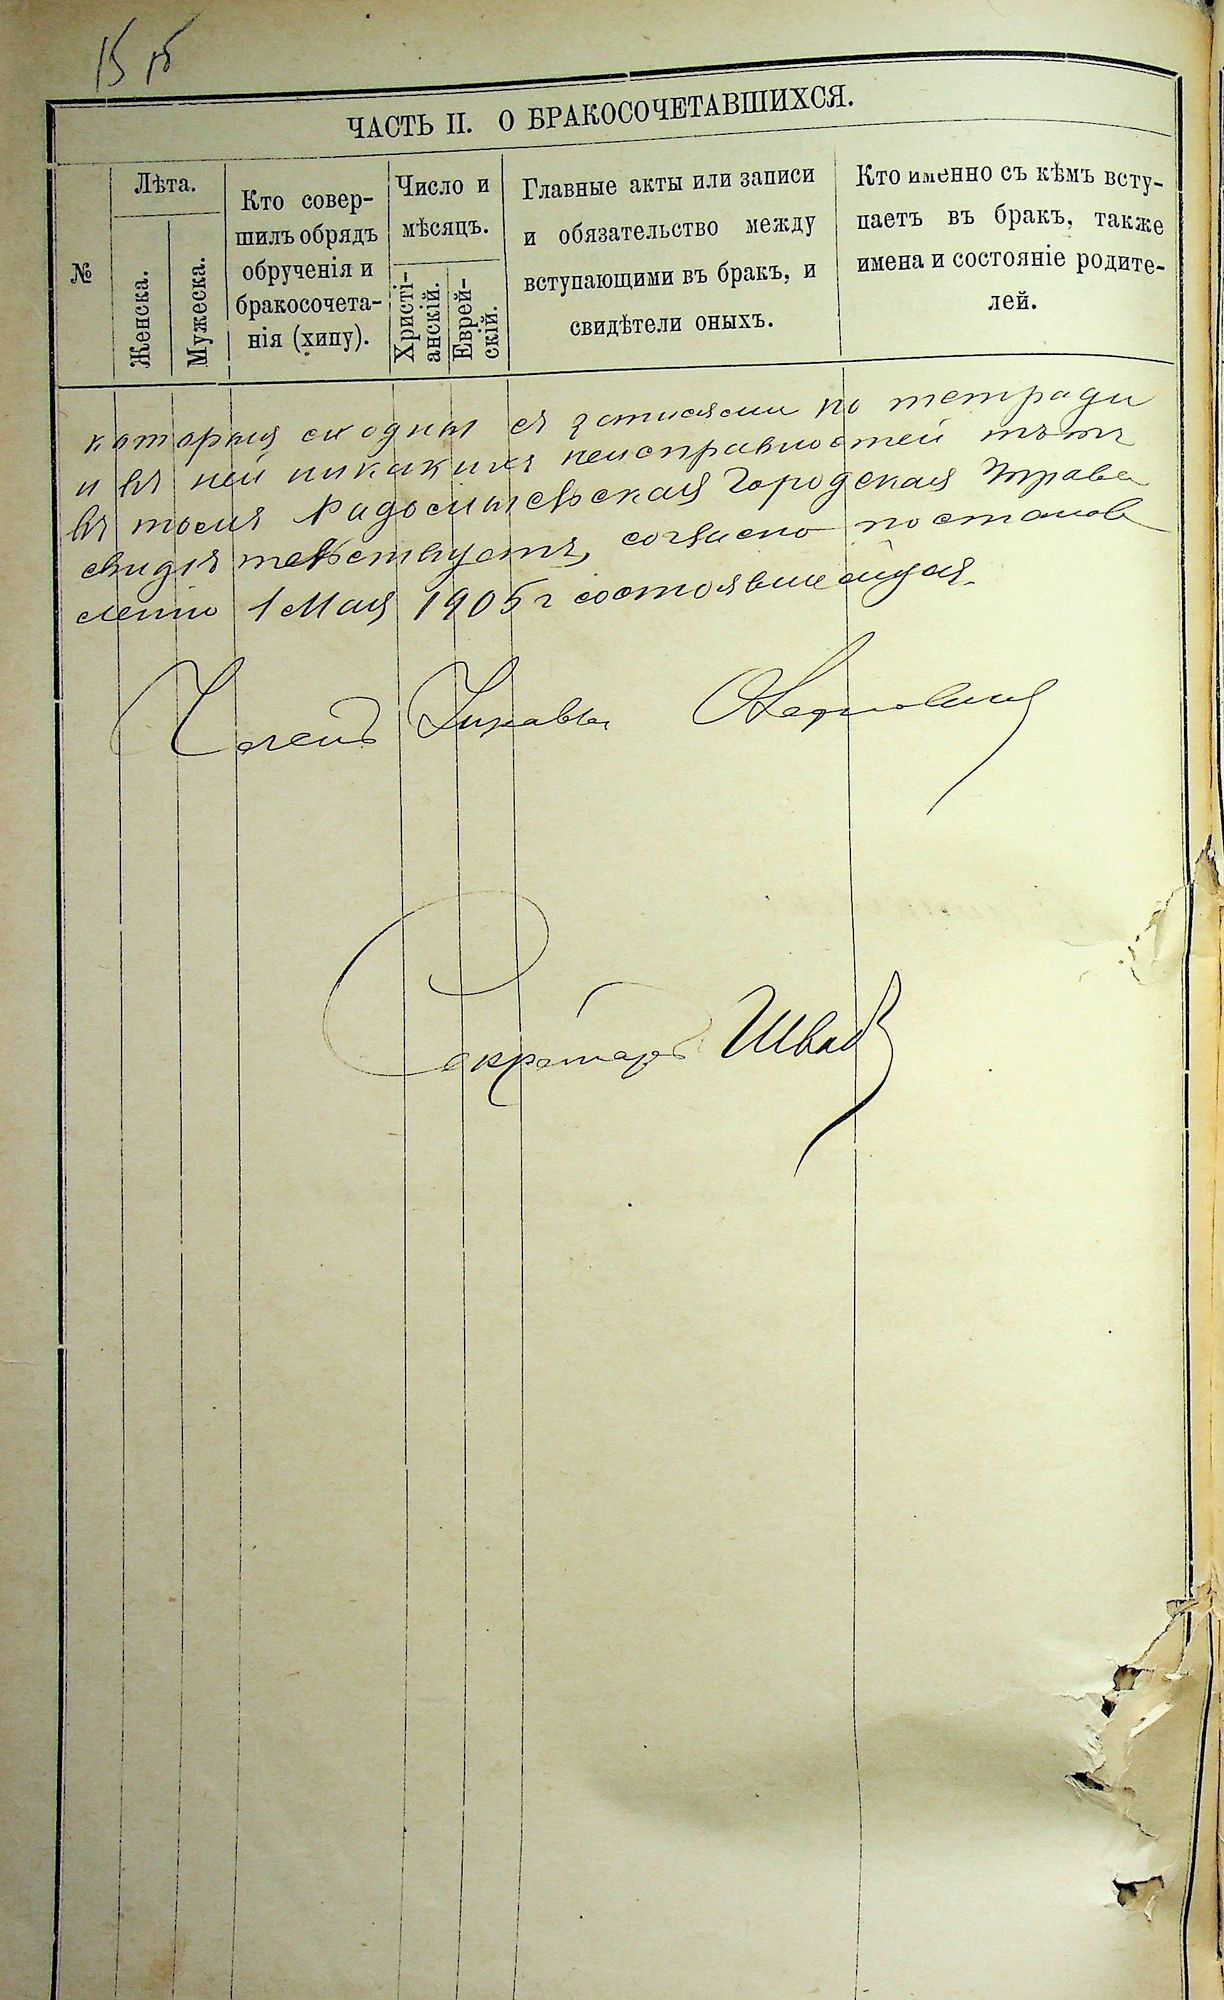 15 об
ЧАСТЬ II. О БРАКОСОЧЕТАВШИХСЯ.
№
Лѣта.
Женска.
Мужеска.
Кто совер-
шилъ обрядъ
обрученія и
бракосочета-
нія (хипу).
Число и
мѣсяцъ.
Христі-
анскій.
Еврей-
скій.
Главные акты или записи
и обязательство между
вступающими въ бракъ, и
свидѣтели оныхъ.
Кто именно съ кѣмъ всту-
паетъ въ бракъ, также
имена и состояніе родите-
лей.
которыя сходны съ записями по тетради
и въ ней никакихъ неисправностей нѣтъ
въ томъ Радомысльская Городская Управа
свидѣтельствуетъ, согласно постанов
ленію 1 Мая 1905 г состоявшемуся.
Членъ Управы
Секретарь Шваб